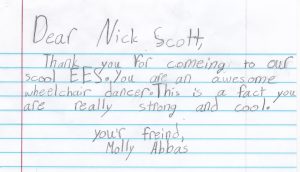 Dear Nick Scott,
Thank you for comeing to our
scool EES. You are an awesome
wheelchair dancer. This is a fact you
are really strong and cool.
your freind,
Molly Abbas